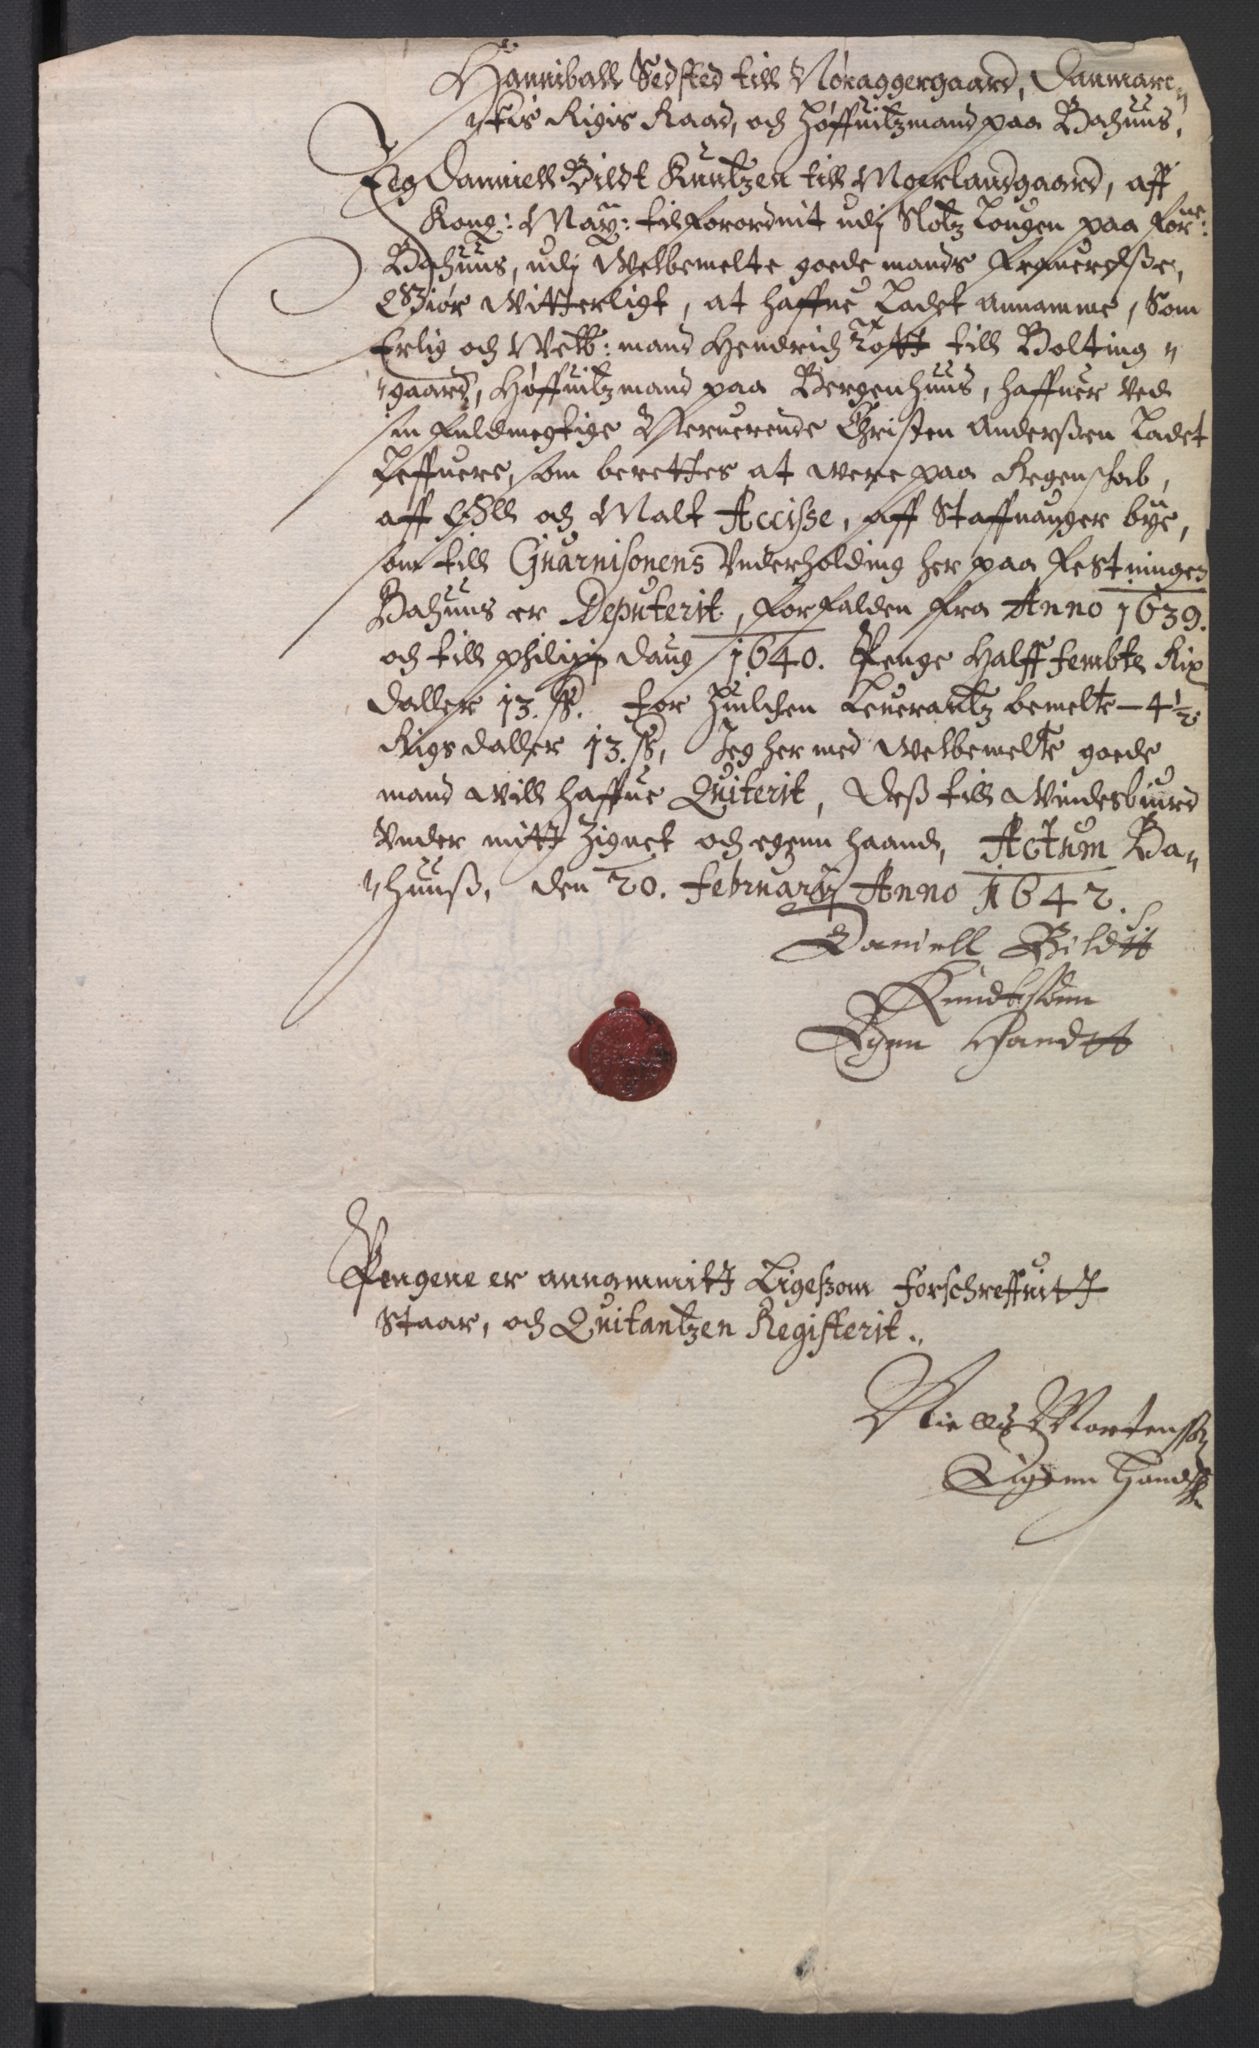 Hanniball Sedsted till Nøraggergaard, Danmarc„
„kis Rigis Raad, och Høffuitzmand paa Bahuus,
Jeg Danniell Bildt Knutzen till Moerlandgaard, aff
Kong: May: tilforordnit udj Slotz Lougen paa Forne:
Bahuus, udj Welbemelte goede mands frauerelße,
Giør Witterligt, at haffue Ladet annamme, Som
Erlig och Welb: mand Hendrich Tott till Bolting„
„gaard, Høffuitzmand paa Bergenhuus, haffuer ved
sin fuldmegtige Christen Anderßen Ladet
Leffuere, som berettes at were paa Regenskab,
aff Øll och Malt Accisse, aff Staffnanger bye,
som till Guarnisonens Vnderholding her paa Festningen
Bahuus er Deputerit, forfalden fra Anno 1639.
och till philipj daug 1640. Penge Halff fembte Rix
daller 13. ß. for huilchen Leuerantz bemelte – 4½
Rigs daller 13. ß, Jeg her med Welbemelte goede
mand will haffue Quiterit, Deß till Windesbuird
Vnder mitt Zignet och egenn haand, Actum Ba„
„huuß, den 20. Februarij Anno 1642.
Daniell Bildtt
Knudtssønn
Egen Handtt
Pengene er annammitt Ligeßom forschreffuitt
Staar, och Quitantzen Registerit.
Niells Mortenssøn
Eigenn Handt